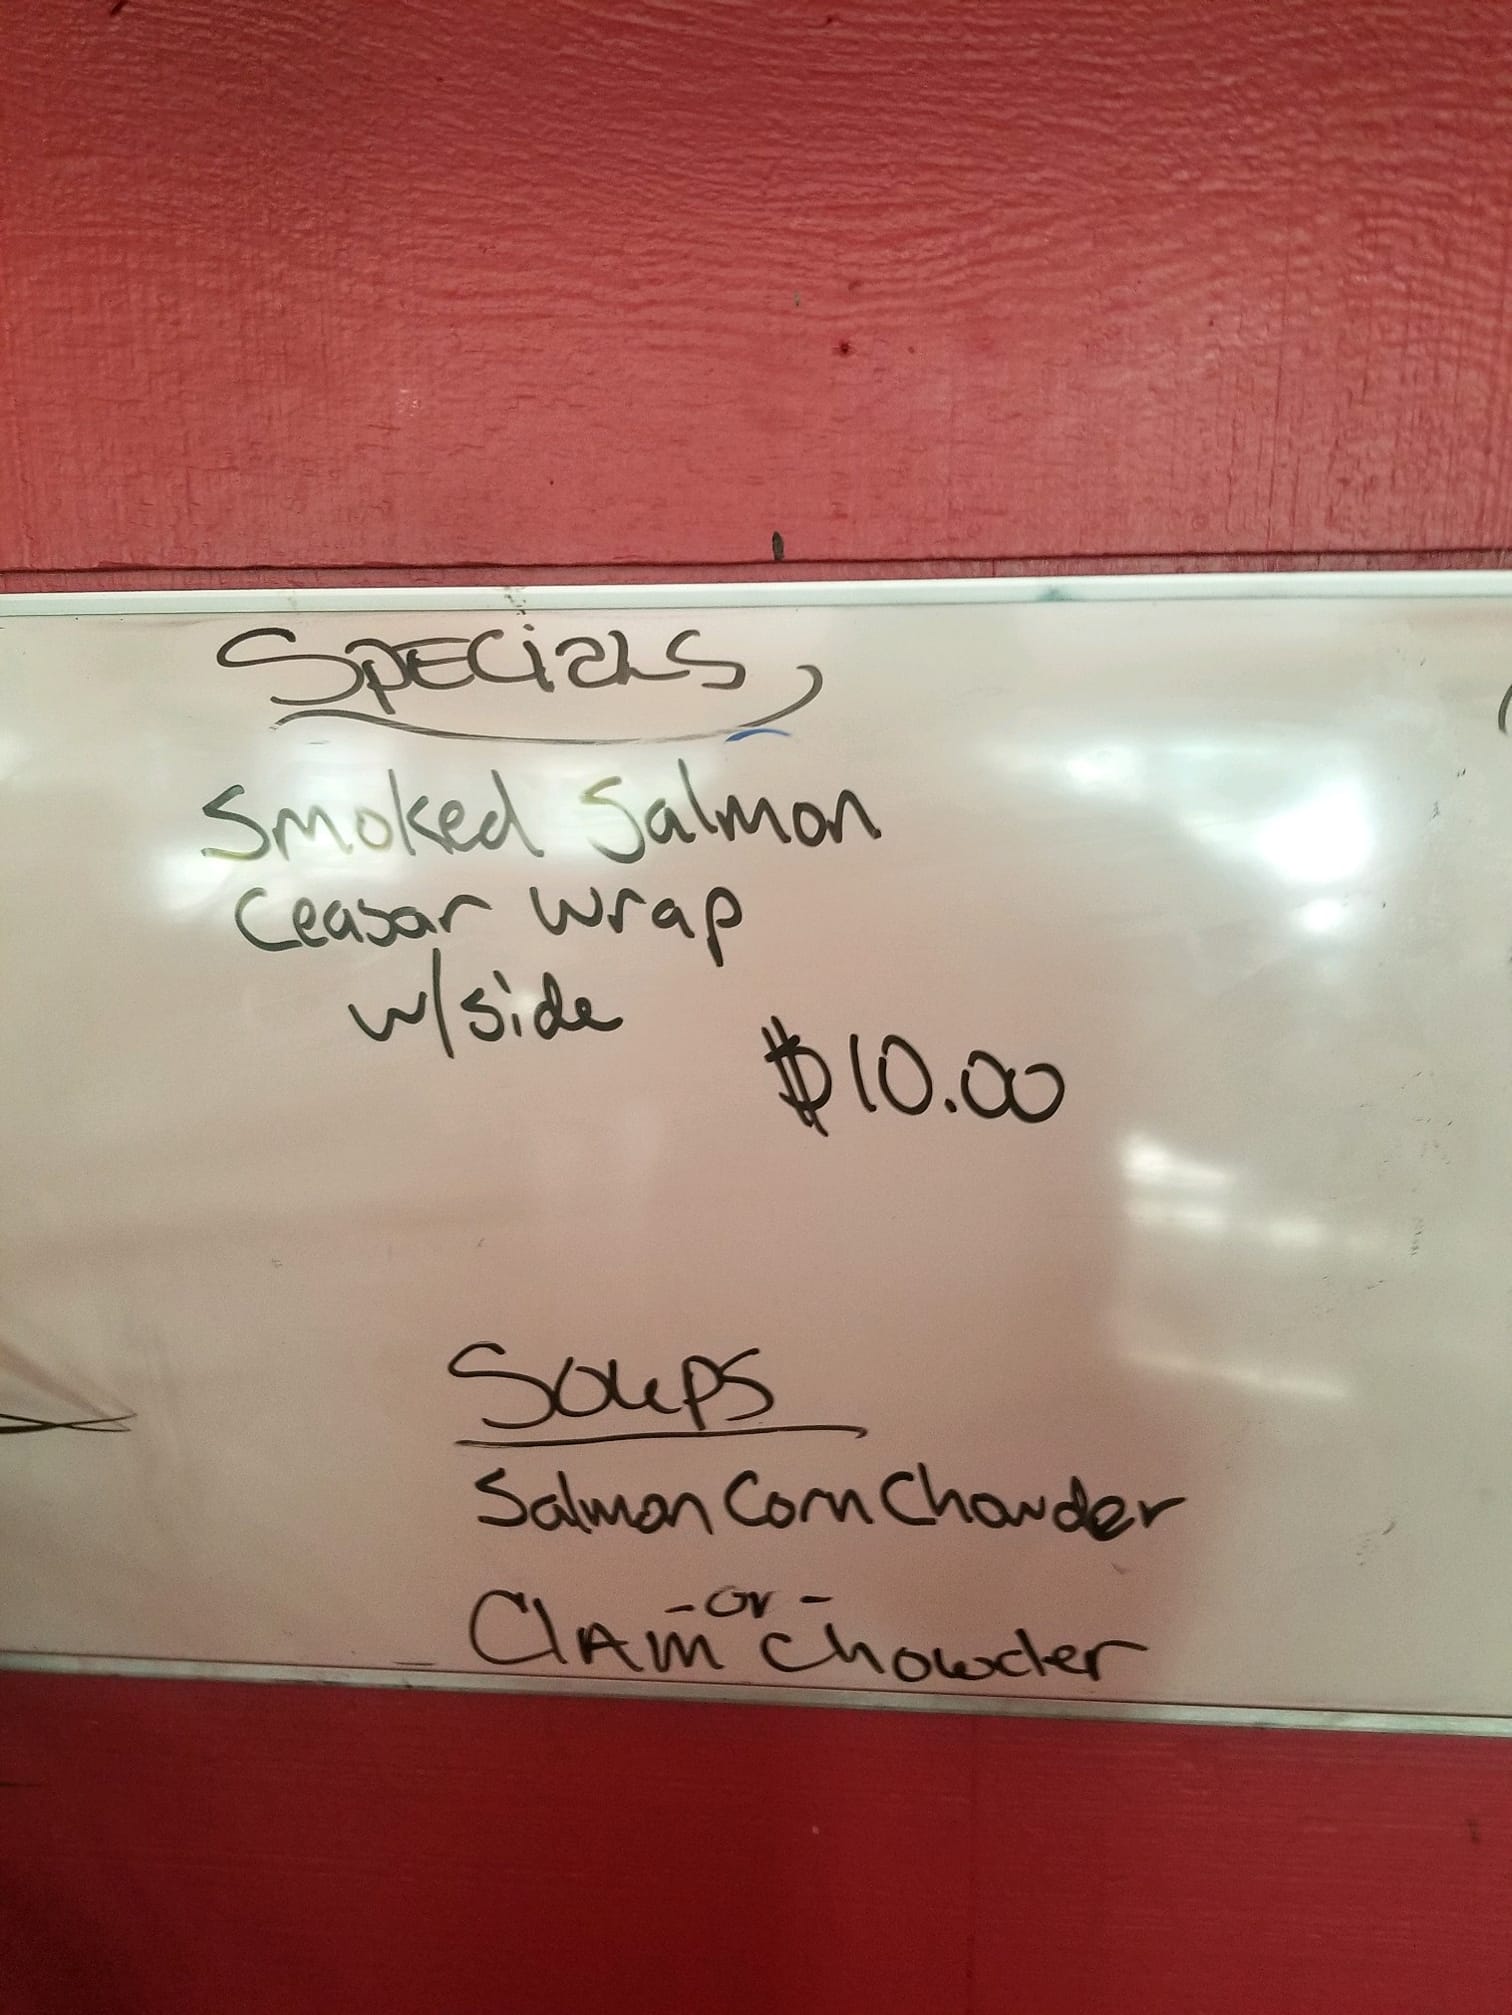 Specials
Smoked Salmon
Ceasar Wrap
w/side
$10.00
Soups
Salmon Corn Chowder
- or -
Clam Chowder